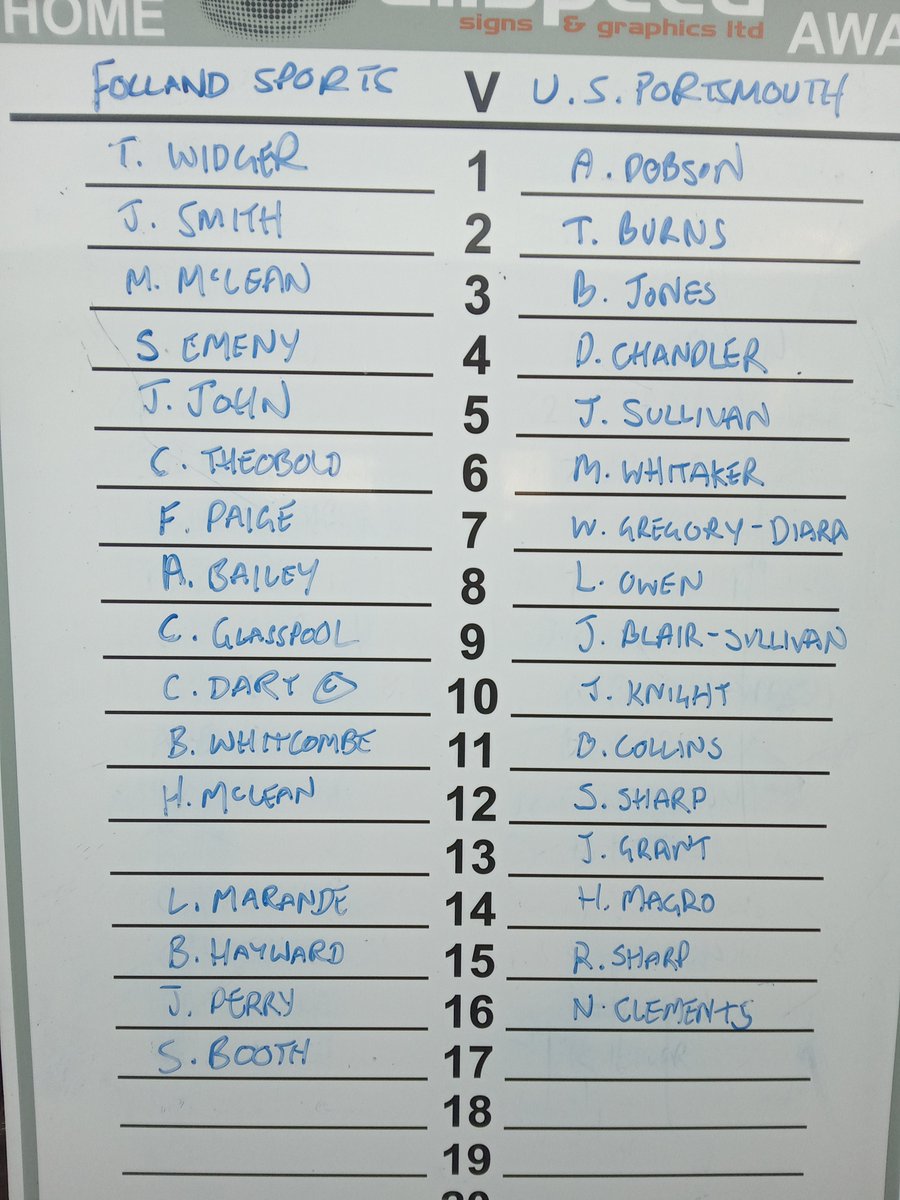 HOME AWA
signs & graphics ltd
FOLLAND SPORTS V U.S. PORTSMOUTH
T. WIDGER 1 A. DOBSON
J. SMITH 2 T. BURNS
M. McLEAN 3 B. JONES
S. EMENY 4 D. CHANDLER
J. JOHN 5 J. SULLIVAN
C. THEOBOLD 6 M. WHITAKER
F. PAIGE 7 W. GREGORY-DIARA
A. BAILEY 8 L. OWEN
C. GLASSPOOL 9 J. BLAIR-SULLIVAN
C. DART © 10 J. KNIGHT
B. WHITCOMBE 11 D. COLLINS
H. McLEAN 12 S. SHARP
13 J. GRANT
L. MARANDE 14 H. MAGRO
B. HAYWARD 15 R. SHARP
J. PERRY 16 N. CLEMENTS
S. BOOTH 17
18
19